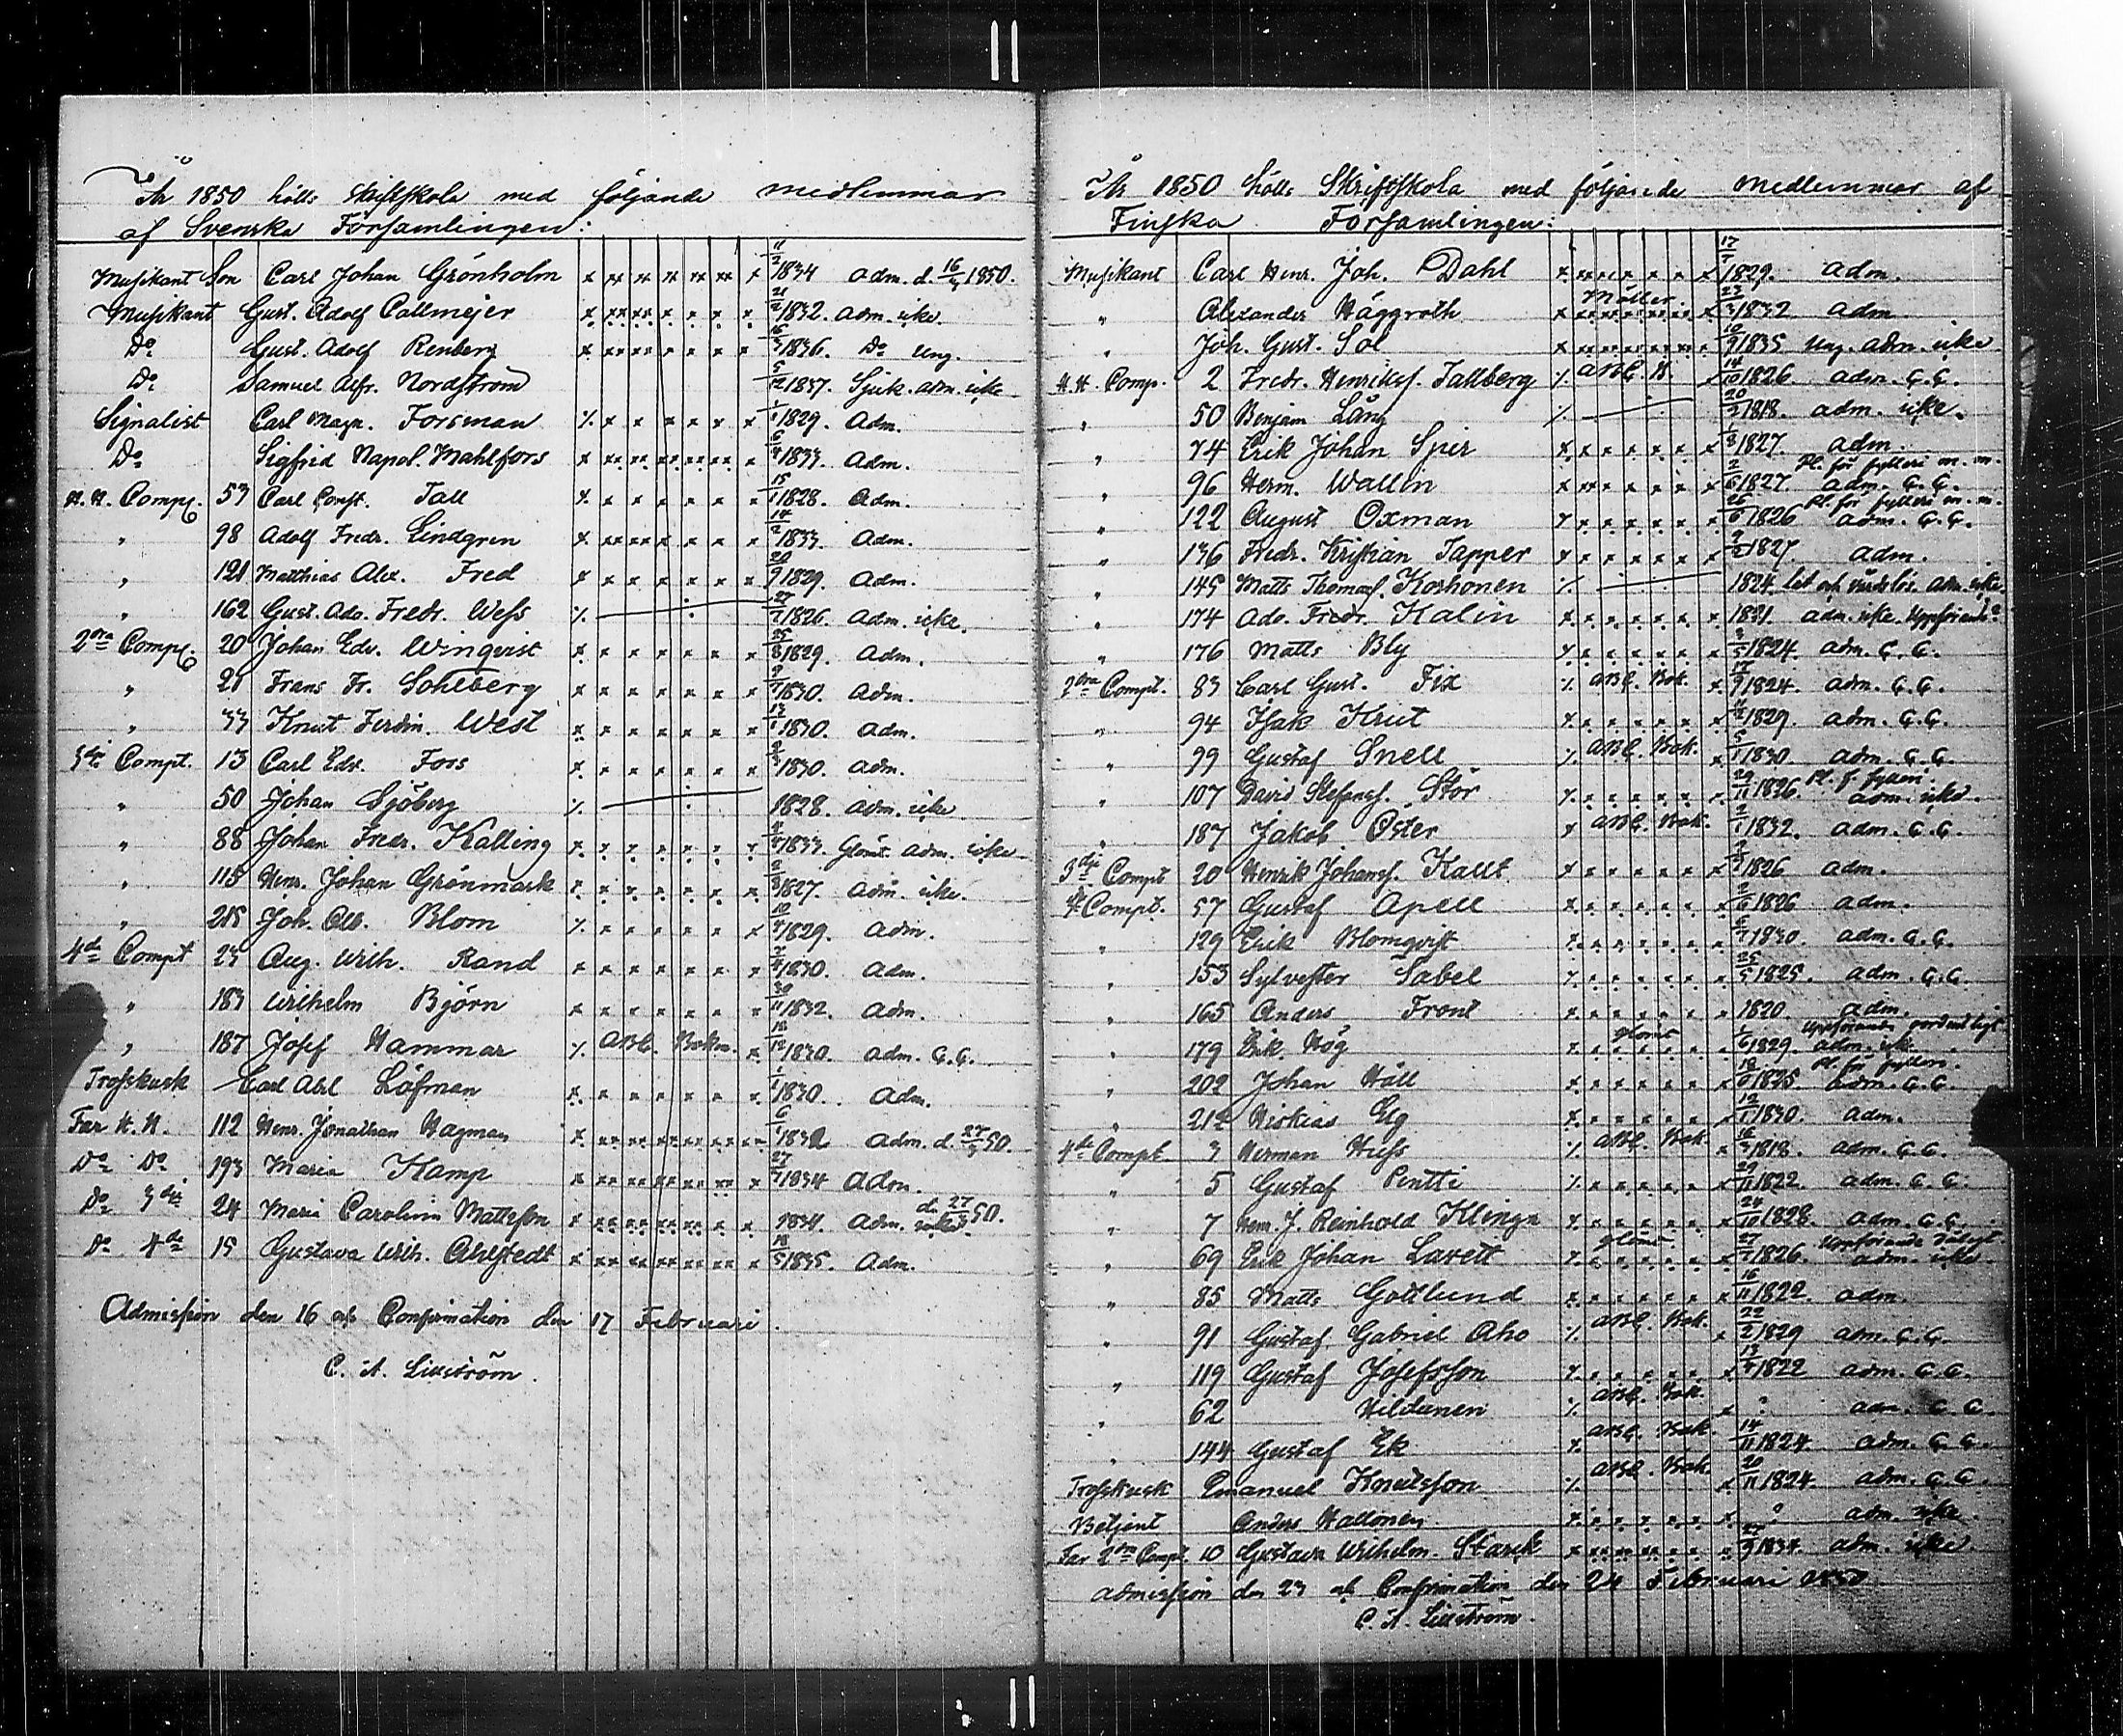 År 1850 hölls Skriftskola med följande medlemmar
af Svenska Församlingen:
Musikant Son Carl Johan Grönholm x xx xx xx xx xx x 11/2 1834 adm. d. 16/3 1850.
Musikant Gust. Adolf Callmejer x xx xx x x x x 21/2 1832. adm. icke.
Do Gust. Adolf Renberg x xx xx x x x x 16/3 1836. Do ung.
Do Samuel Alfr. Nordström 5/12 1837. Sjuk. adm. icke
Signalist Carl Magn. Forsman 1829. Adm.
Do Sigfrid Napol. Mahlfors 1833. Adm.
H.H. Comp. 53 Carl Const. Tall 15/1 1828. Adm.
" 98 Adolf Fredr. Lindgren 14/2 1833. Adm.
" 121 Matthias Alex. Fred 20/9 1829. Adm.
" 162 Gust. Ado. Fredr. Wess 27/7 1826. Adm. icke.
2dra Comp. 20 Johan Edv. Winqvist 25/8 1829. Adm.
" 21 Frans Fr. Sohlberg 1830. Adm.
" 33 Knut Ferdin. West 13/1 1830. Adm.
3die Compt. 13 Carl Edv. Fors 1830. Adm.
" 50 Johan Sjöberg 1828. adm. icke
" 88 Johan Fredr. Kalling 1833. Glömt. adm. icke
" 115 Henr. Johan Grönmark 2/3 1827. adm. icke.
" 215 Joh. Alb. Blom 10/4 1829. Adm.
4de Compt 23 Aug. Wilh. Rand 1830. Adm.
" 183 Wilhelm Björn 30/11 1832. Adm.
" 187 Josef Hammar ABC. Boken. 12/12 1830. adm. C.C.
Trosskusk Carl Abl Löfman 1830. Adm.
Far H.H. 112 Henr. Jonathan Hagman 1832 Adm. d. 27/3 50.
Do Do 193 Maria Kamp 27/7 1834 Adm.
Do 3die 24 Maria Carolina Mattsson 1834. Adm. d. 27/3 50.
Do 4de 15 Gustava Wilh. Ahlstedt 1835. Adm.
Admission den 16 och Confirmation den 17 Februari.
C. A. Lillström.
År 1850 hölls Skriftskola med följande medlemmar af
Finska Församlingen:
Musikant Carl Henr. Joh. Dahl 17/7 1829. adm.
" Alexander Häggroth Möller. 23/3 1832 adm
" Joh. Gust. Sol 10/9 1835 Ung. adm. icke
H.H. Comp. 2 Fredr. Henrikss. Tallberg ABC. 14/10 1826. adm. C.C.
" 50 Benjam Lång 20/2 1818. adm. icke.
" 74 Erik Johan Spir 1/8 1827. adm.
" 96 Herm. Wallin 2/6 1827. Pl. för fylleri m.m. adm. C.C.
" 122 August Oxman 26/6 1826 Pl. för fylleri m.m. adm. C.C.
" 136 Fredr. Kristian Tapper 1827 adm.
" 145 Matts Thomass. Korhonen 1824. lat och vårdslös. adm. icke
" 174 Ado. Fredr. Kalin 1831. adm. icke. Uppförande?
" 176 Matts Bly 1824. adm. C.C.
2dra Compt. 83 Carl Gust. Fix ABC. Bok. 17/9 1824. adm. C.C.
" 94 Isak Krut 1829. adm. C.C.
" 99 Gustaf Snell ABC. Bok. 1830. adm. C.C.
" 107 David Stefanss. Stör 29/11 1826. Pl. f. fylleri. adm. icke.
" 187 Jakob Öster ABC. Bok. 2/1 1832. adm. C.C.
3die Compt 20 Henrik Johanss. Kallt 1826 adm.
4de Compt. 57 Gustaf Apell 2/6 1826 adm.
" 129 Erik Blomqvist 1830. adm. C.C.
" 153 Sylvester Sabel 25/5 1825. adm. C.C.
" 165 Anders Front 1820. adm.
" 179 Erik Hög glömt 1/6 1829. Uppförande adm. icke
" 202 Johan Häll 1825 Pl. för fylleri. adm. C.C.
" 212 Hiskias Elg 12/1 1830. adm.
4de Compt 3 Herman Hiess ABC. Bok. 1818. adm. C.C.
" 5 Gustaf Pentti 29/11 1822. adm. C.C.
" 7 Hem. J. Reinhold Klinga 24/10 1828. adm. C.C.
" 69 Erik Johan Lavett glömt. 27/7 1826. Uppförande dåligt adm. icke
" 85 Matts Gottlund 16/11 1822. adm.
" 91 Gustaf Gabriel Aho ABC. Bok. 22/2 1829 adm. C.C.
" 119 Gustaf Josefsson 13/5 1822 adm. C.C.
" 62 Hildanen ABC. Bok. ? adm. C.C.
" 144 Gustaf Ek ABC. Bok. 14/11 1824. adm. C.C.
Trosskusk Emanuel Knutsson ABC. Bok. 20/11 1824. adm. C.C.
Betjent Anders Hallonen ? adm. icke
Far 2dra Compt. 10 Gustava Wilhelm. Stark 27/9 1834. adm. icke
Admission den 23 och Confirmation den 24 Februari 1850.
C. A. Lillström.